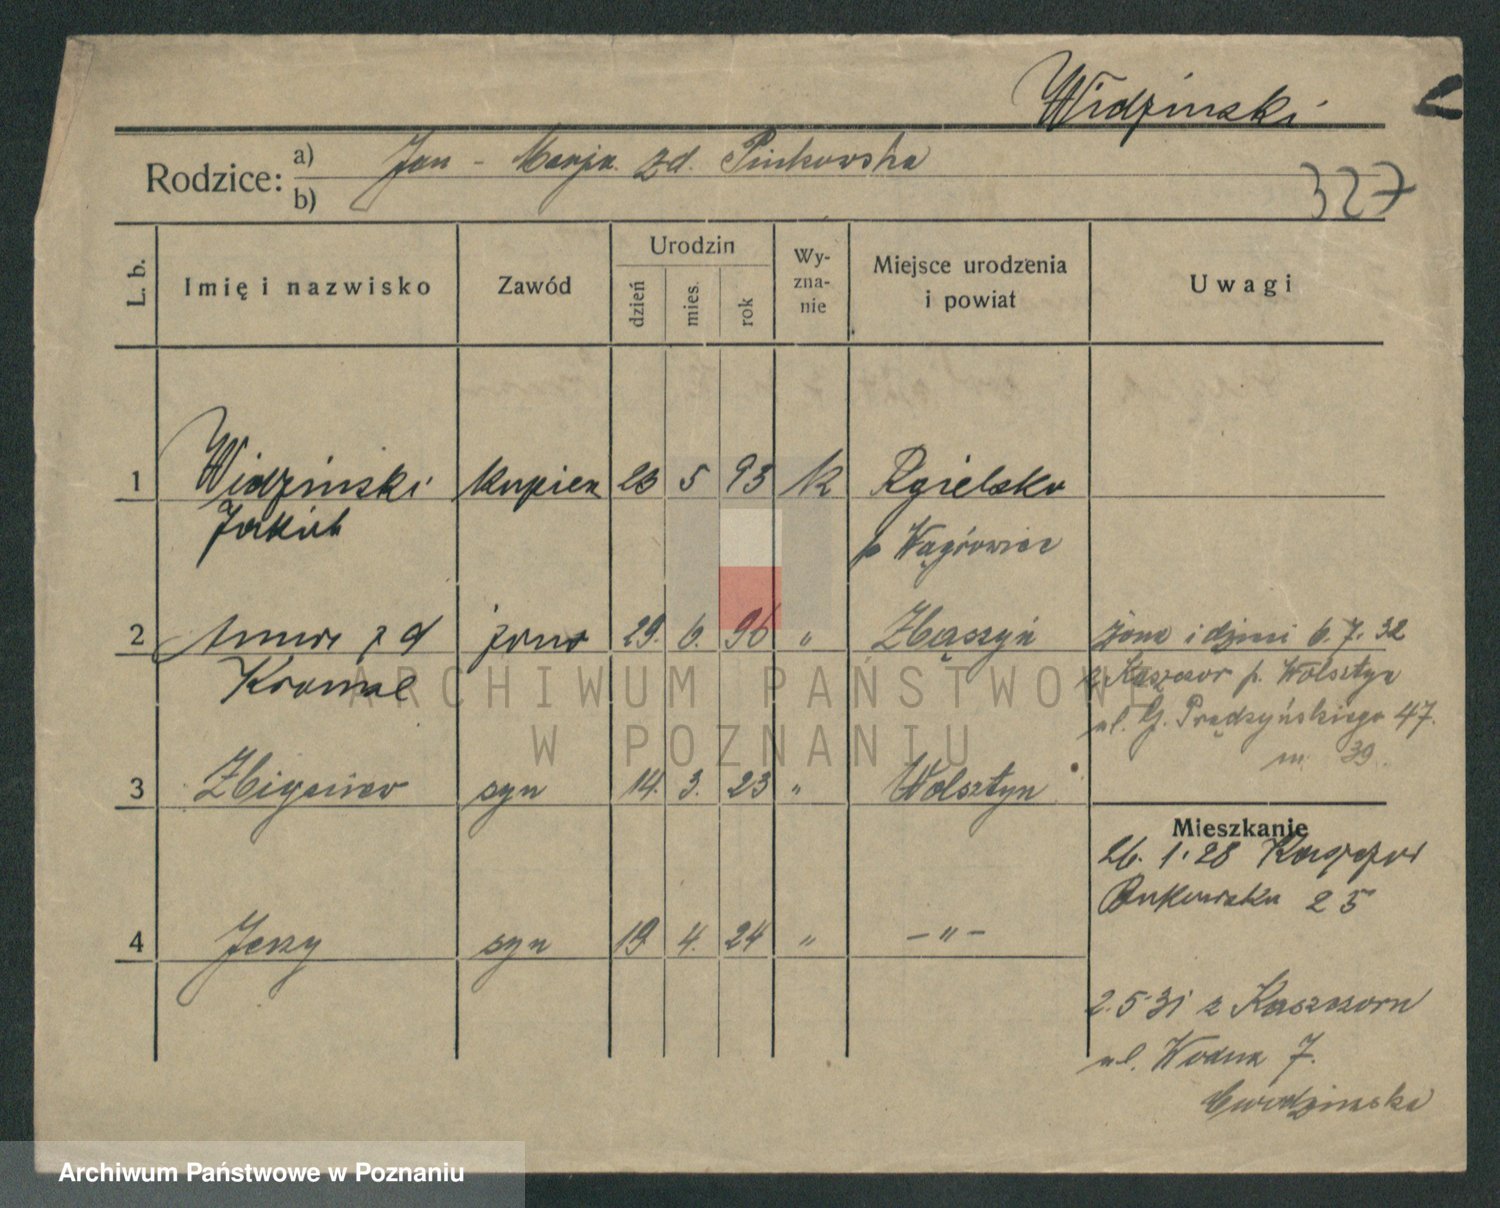 Widziński
Rodzice: a) Jan - Marja zd. Pinkowska
b)
327
L. b.
Imię i nazwisko
Zawód
Urodzin
dzień
mies.
rok
Wy-
zna-
nie
Miejsce urodzenia
i powiat
Uwagi
1 Widziński kupiec 23 5 93 k Rgielsko
Jakób p Wągrowiec
2 Anna zd żona 29. 6. 96 " Zbąszyń
Kromal
żona i dzieci 6. 7. 32
z Kaszczor p. Wolsztyn
ul. G. Prądzyńskiego 47.
m 39.
3 Zbigniew syn 14. 3. 23 " Wolsztyn
4 Jerzy syn 19 4. 24 " - " -
Mieszkanie
26. 1. 28 Kaszczor
Bukowska 25
2. 5. 31 z Kaszczoru
ul. Wodna 7.
ARCHIWUM PAŃSTWOWE
W POZNANIU
Archiwum Państwowe w Poznaniu